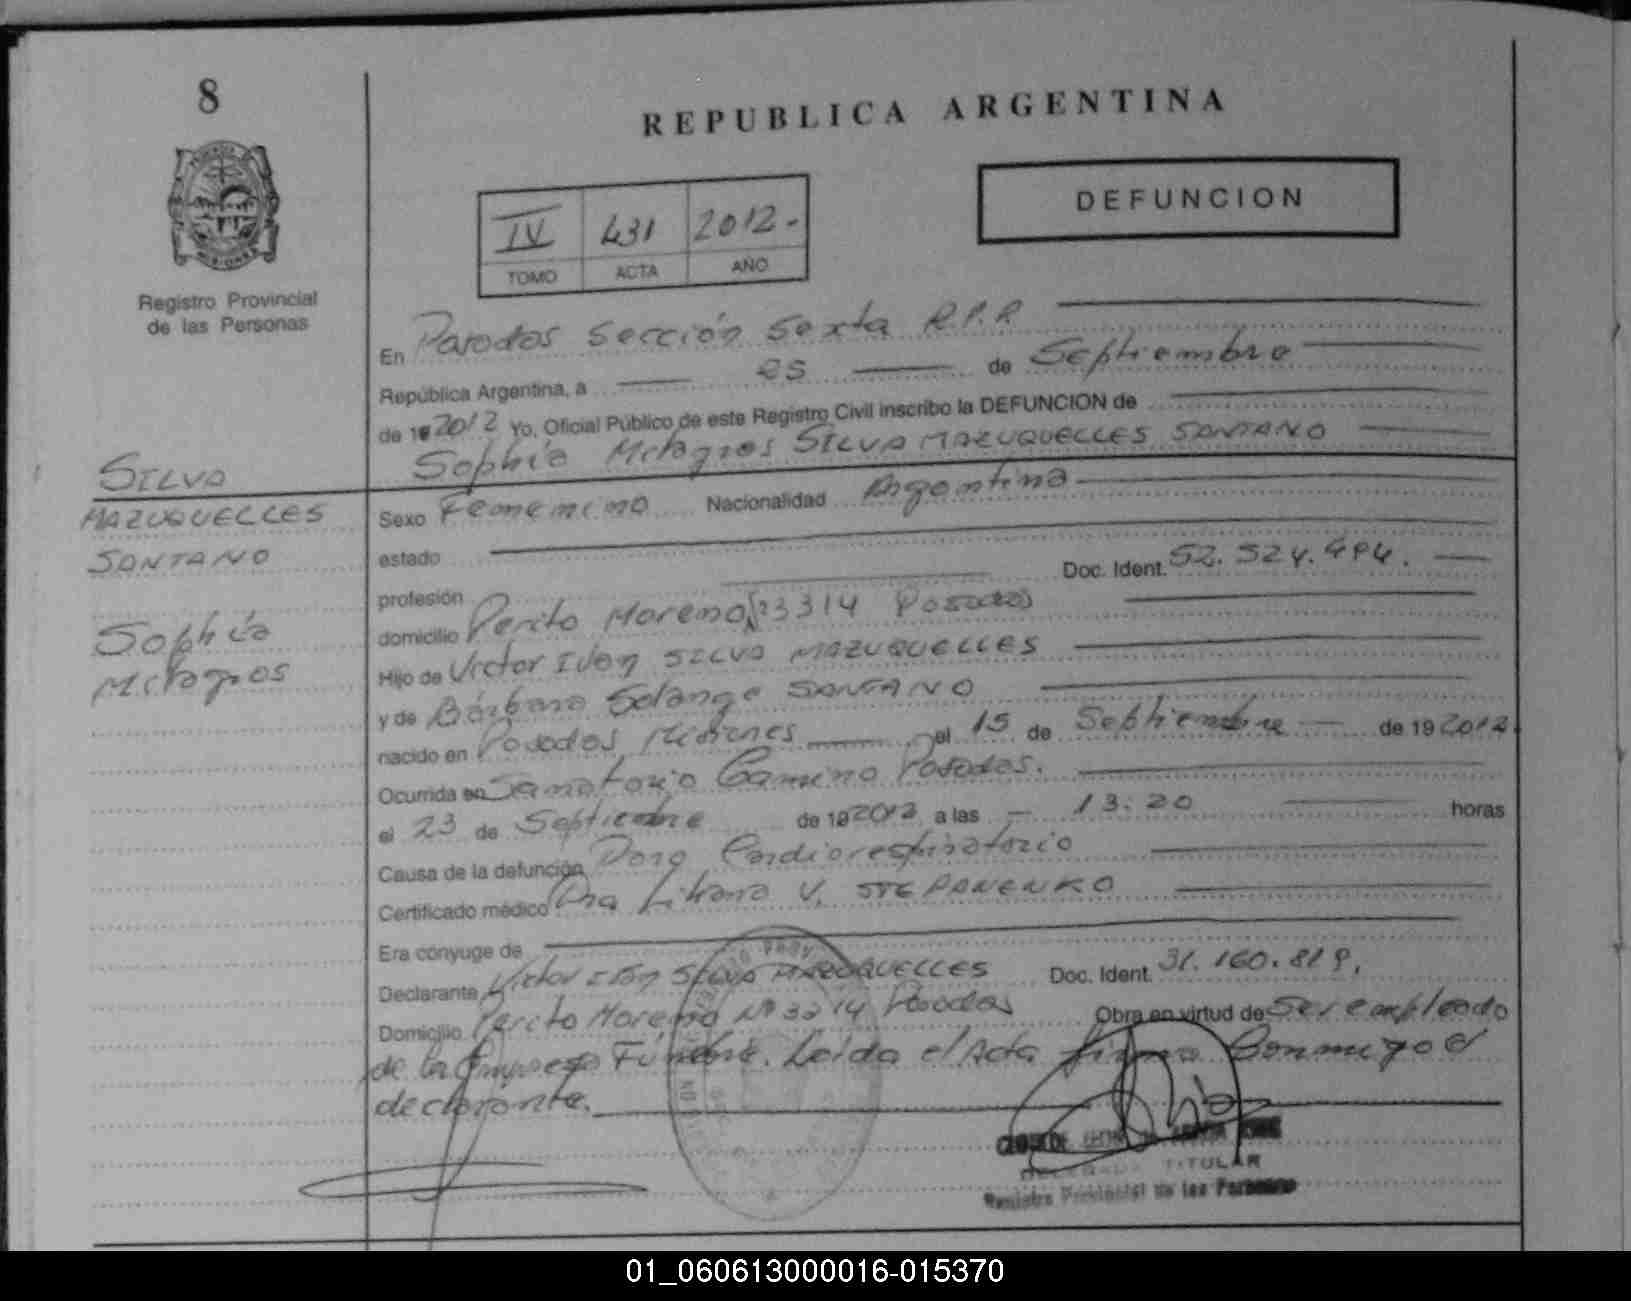 8
REPUBLICA ARGENTINA
DEFUNCION
IV 431 2012.-
TOMO ACTA AÑO
Registro Provincial
de las Personas
En Posadas Sección Sexta R.P.P
República Argentina, a 25 de Septiembre
de 19 2012 Yo, Oficial Público de este Registro Civil inscribo la DEFUNCION de
Sophia Milagros SILVA MAZUQUELLES SANTANO
SILVA
MAZUQUELLES
SANTANO
Sophia
Milagros
Sexo Femenino Nacionalidad Argentina
estado
profesión Doc. Ident. 52.524.494.
domicilio Perito Moreno 3314 Posadas
Hijo de Victor Iván SILVA MAZUQUELLES
y de Bárbara Solange SANTANO
nacido en Posadas Misiones el 15 de Septiembre de 19 2012
Ocurrida en Sanatorio Camino Posadas.
el 23 de Septiembre de 19 2012 a las 13.20 horas
Causa de la defunción Paro Cardiorespiratorio
Certificado médico Dra Liliana V. STEPANENKO
Era cónyuge de
Declarante Victor Iván SILVA MAZUQUELLES Doc. Ident. 31.160.819.
Domicilio Perito Moreno Nº 3314 Posadas Obra en virtud de Ser empleado
de la Empresa Fúnebre. Leída el Acta firma Conmigo el
declarante.
TITULAR
Registro Provincial de las Personas
01_060613000016-015370